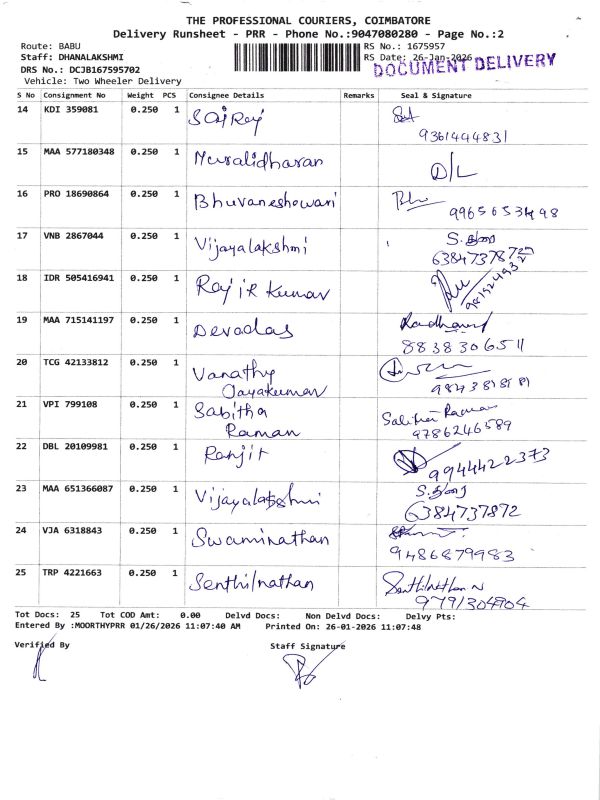 THE PROFESSIONAL COURIERS, COIMBATORE
Delivery Runsheet - PRR - Phone No.:9047080280 - Page No.:2
Route: BABU RS No.: 1675957
Staff: DHANALAKSHMI RS Date: 26-Jan-2026
DOCUMENT DELIVERY
DRS No.: DCJB167595702
Vehicle: Two Wheeler Delivery
S No Consignment No Weight PCS Consignee Details Remarks Seal & Signature
14 KDI 359081 0.250 1
9361444831
15 MAA 577180348 0.250 1 Muralidharan D/L
16 PRO 18690864 0.250 1 Bhuvaneshowari
9965653498
17 VNB 2867044 0.250 1 Vijayalakshmi S.
63847378
18 IDR 505416941 0.250 1 Rajir Kumar
19 MAA 715141197 0.250 1 Devadas
8838306511
20 TCG 42133812 0.250 1 Vanathy
Jayakumar
21 VPI 799108 0.250 1 Sabitha
Raman
9786246589
22 DBL 20109981 0.250 1 Ranjit
9944422373
23 MAA 651366087 0.250 1 Vijayalakshmi S.
6384737872
24 VJA 6318843 0.250 1 Swaminathan
9486879983
25 TRP 4221663 0.250 1 Senthilnathan Senthilnathan N
9791304904
Tot Docs: 25 Tot COD Amt: 0.00 Delvd Docs: Non Delvd Docs: Delvy Pts:
Entered By :MOORTHYPRR 01/26/2026 11:07:40 AM Printed On: 26-01-2026 11:07:48
Verified By Staff Signature